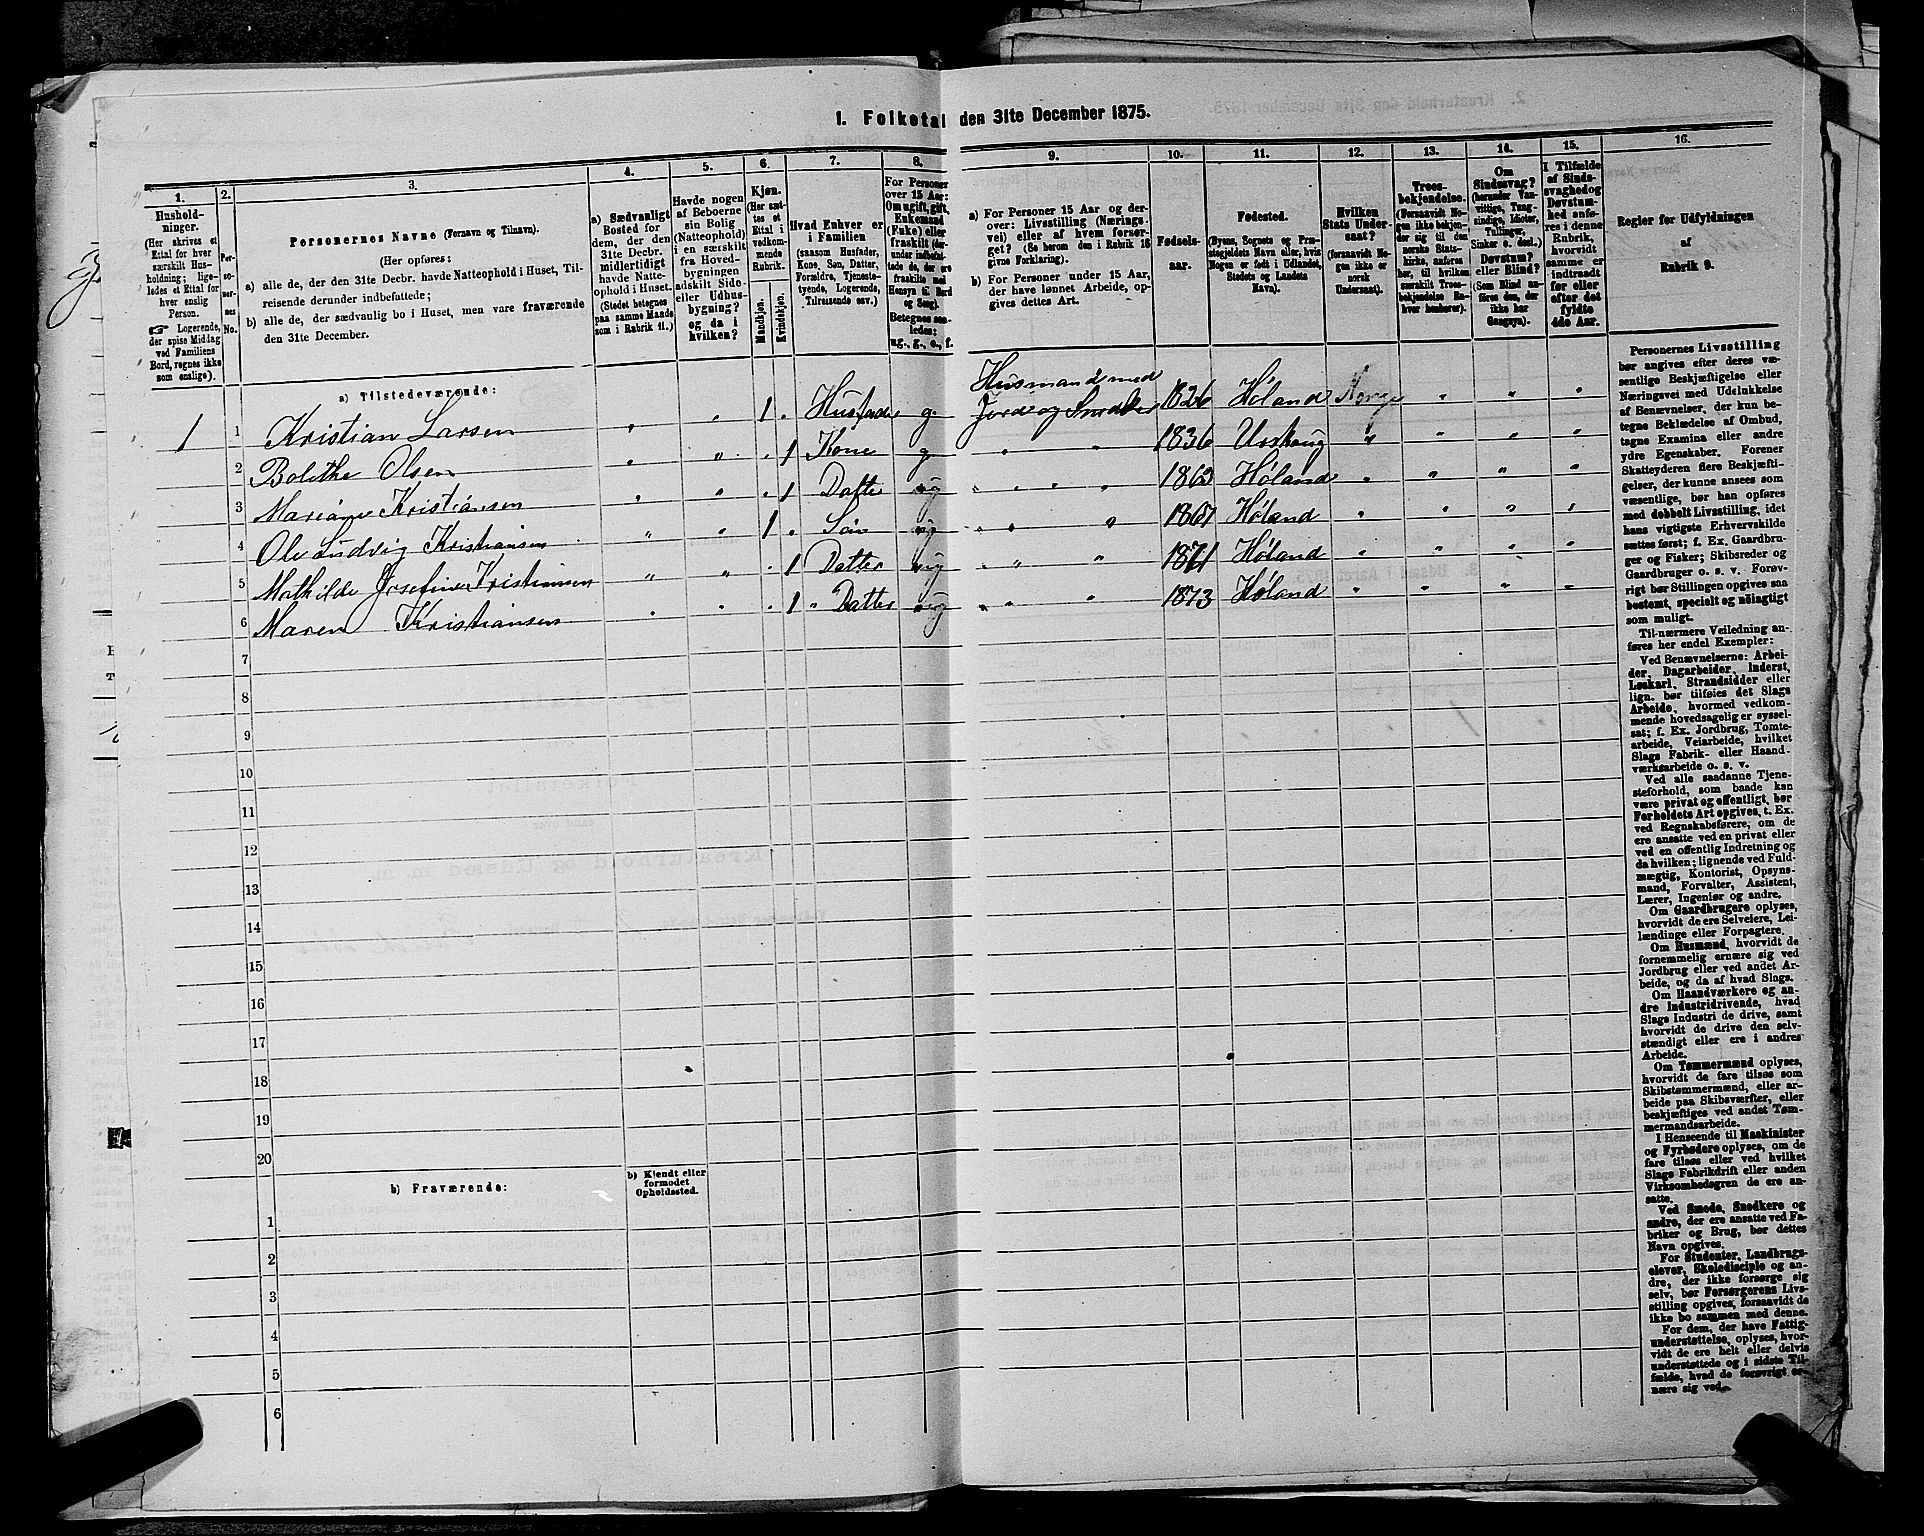 1. Folketal den 31te December 1875.
1.
Hushold-
ninger.
(Her skrives et
Ettal for hver
særskilt Hus-
holdning; lige-
ledes et Ettal for
hver enslig
Person.
☞ Logerende,
der spise Middag
ved Familiens
Bord, regnes ikke
som enslige).
2.
Per-
so-
ner-
nes
No.
3.
Personernes Navne (Fornavn og Tilnavn).
(Her opføres:
a) alle de, der den 31te Decbr. havde Natteophold i Huset, Til-
reisende derunder indbefattede;
b) alle de, der sædvanlig bo i Huset, men vare fraværende
den 31te December.
4.
a) Sædvanligt
Bosted for
dem, der den
31te Decbr.
midlertidigt
havde Natte-
ophold i Huset.
(Stedet betegnes
paa samme Maade
som i Rubrik 11.)
5.
Havde nogen
af Beboerne
sin Bolig
(Natteophold)
i en særskilt
fra Hoved-
bygningen
adskilt Side-
eller Udhus-
bygning?
og da i
hvilken?
6.
Kjøn.
(Her sæt-
tes et
Ettal i
vedkom-
mende
Rubrik.
Mandkjøn.
Kvindekjøn.
7.
Hvad Enhver er
i Familien
(saasom Husfader,
Kone, Søn, Datter,
Forældre, Tjeneste-
tyende, Logerende,
Tilreisende osv.)
8.
For Personer
over 15 Aar:
Om ugift, gift,
Enkemand
(Enke) eller
fraskilt (der-
under indbefat-
tede de, der ere
fraskilte med
Hensyn til Bord
og Seng).
Betegnes saa-
ledes:
ug., g., e., f.
9.
a) For Personer 15 Aar og der-
over: Livsstilling (Nærings-
vei) eller af hvem forsør-
get? (Se herom den i Rubrik 16
givne Forklaring).
b) For Personer under 15 Aar,
der have lønnet Arbeide, op-
gives dettes Art.
10.
Fødsels-
aar.
11.
Fødested.
(Byens, Sognets og Præ-
stegjeldets Navn eller, hvis
Nogen er født i Udlandet,
Stedets og Landets
Navn).
12.
Hvilken
Stats Under-
saat?
(forsaavidt No-
gen ikke er
norsk
Undersaat).
13.
Troes-
bekjendelse.
(Forsaavidt No-
gen ikke bekjen-
der sig til den
norske Stats-
kirke, anføres
her, til hvilken
særskilt Troes-
bekjendelse En-
hver henhører).
14.
Om
Sindssvag?
(herunder Van-
vittige, Tung-
sindige, Idioter,
Tullinger,
Sinker o. desl.)
Døvstum?
eller Blind?
(Som Blind an-
føres den, der
ikke har
Gangsyn).
15.
I Tilfælde
af Sinds-
svaghed og
Døvstum-
hed anfø-
res i denne
Rubrik,
hvorvidt
samme er
indtraadt
før eller
efter det
fyldte
4de Aar.
16.
Regler for Udfyldningen
af
Rubrik 9.
a) Tilstedeværende:
Husmand med
1 1 Kristian Larsen " " 1 " Husfader g. Jord og Snedker 1826 Høland Norge " " "
2 Bolethe Olsen " " " 1 Kone g " " 1836 Urskoug " " " "
3 Mariane Kristiansen " " " 1 Datter ug " " " " 1863 Høland " " " "
4 Ole Ludvig Kristiansen " " 1 " Søn ug " " " 1867 Høland " " " "
5 Mathilde Josefine Kristiansen " " " 1 Datter ug " " " 1871 Høland " " " "
6 Maren Kristiansen " " " 1 " Datter ug " " " 1873 Høland " " " "
7
8
9
10
11
12
13
14
15
16
17
18
19
20
b) Fraværende:
b) Kjendt eller
formodet
Opholdssted.
1
2
3
4
5
6
Personernes Livsstilling
bør angives efter deres væ-
sentlige Beskjæftigelse eller
Næringsvei med Udelukkelse
af Benævnelser, der kun be-
tegne Beklædelse af Ombud,
tagne Examina eller andre
ydre Egenskaber. Forener
Skatteyderen flere Beskjæfti-
gelser, der kunne ansees som
væsentlige, bør han opføres
med dobbelt Livsstilling, idet
hans vigtigste Erhvervskilde
sættes først; f. Ex. Gaardbru-
ger og Fisker; Skibsreder og
Gaardbruger o. s. v. Forøv-
rigt bør Stillingen opgives saa
bestemt, specielt og nøiagtigt
som muligt.
Til nærmere Veiledning an-
føres her endel Exempler:
Ved Benævnelserne: Arbei-
der, Dagarbeider, Inderst,
Løskarl, Strandsidder eller
lign. bør tilføies det Slags
Arbeide, hvormed vedkom-
mende hovedsagelig er syssel-
sat; f. Ex. Jordbrug, Tomte-
arbeide, Veiarbeide, hvilket
Slags Fabrik- eller Haand-
værksarbeide o. s. v.
Ved alle saadanne Tjene-
steforhold, som baade kan
være privat og offentligt, bør
Forholdets Art opgives, t. Ex.
ved Regnskabsførere, om de
ere ansatte ved en privat eller
ved en offentlig Indretning og
da hvilken; lignende ved Fuld-
mægtig, Kontorist, Opsyns-
mand, Forvalter, Assistent,
Lærer, Ingeniør og andre.
Om Gaardbrugere oplyses,
hvorvidt de ere Selveiere, Lei-
lændinge eller Forpagtere.
Om Husmænd, hvorvidt de
fornemmelig ernære sig ved
Jordbrug eller ved andet Ar-
beide, og da af hvad Slags.
Om Haandværkere og an-
dre Industridrivende, hvad
Slags Industri de drive, samt
hvorvidt de drive den selv-
stændigt eller ere i andres
Arbeide.
Om Tømmermænd oplyses,
hvorvidt de fare tilsøs som
Skibstømmermænd, eller ar-
beide paa Skibsværfter, eller
beskjæftiges ved andet Tøm-
mermandsarbeide.
I Henseende til Maskinister
og Fyrbødere oplyses, om de
fare tilsøs eller ved hvilket
Slags Fabrikdrift eller anden
Virksomhedsgren de ere an-
satte.
Ved Smede, Snedkere og
andre, der ere ansatte ved Fa-
briker og Brug, bør dettes
Navn opgives.
For Studenter, Landbrugs-
elever, Skoledisciple og an-
dre, der ikke forsørge sig
selv, bør Forsørgerens Livs-
stilling opgives, forsaavidt de
ikke bo sammen med denne.
For dem, der have Fattig-
understøttelse, oplyses, hvor-
vidt de ere helt eller delvis
understøttede og i sidste Til-
fælde, hvad de forøvrigt er-
nære sig ved.